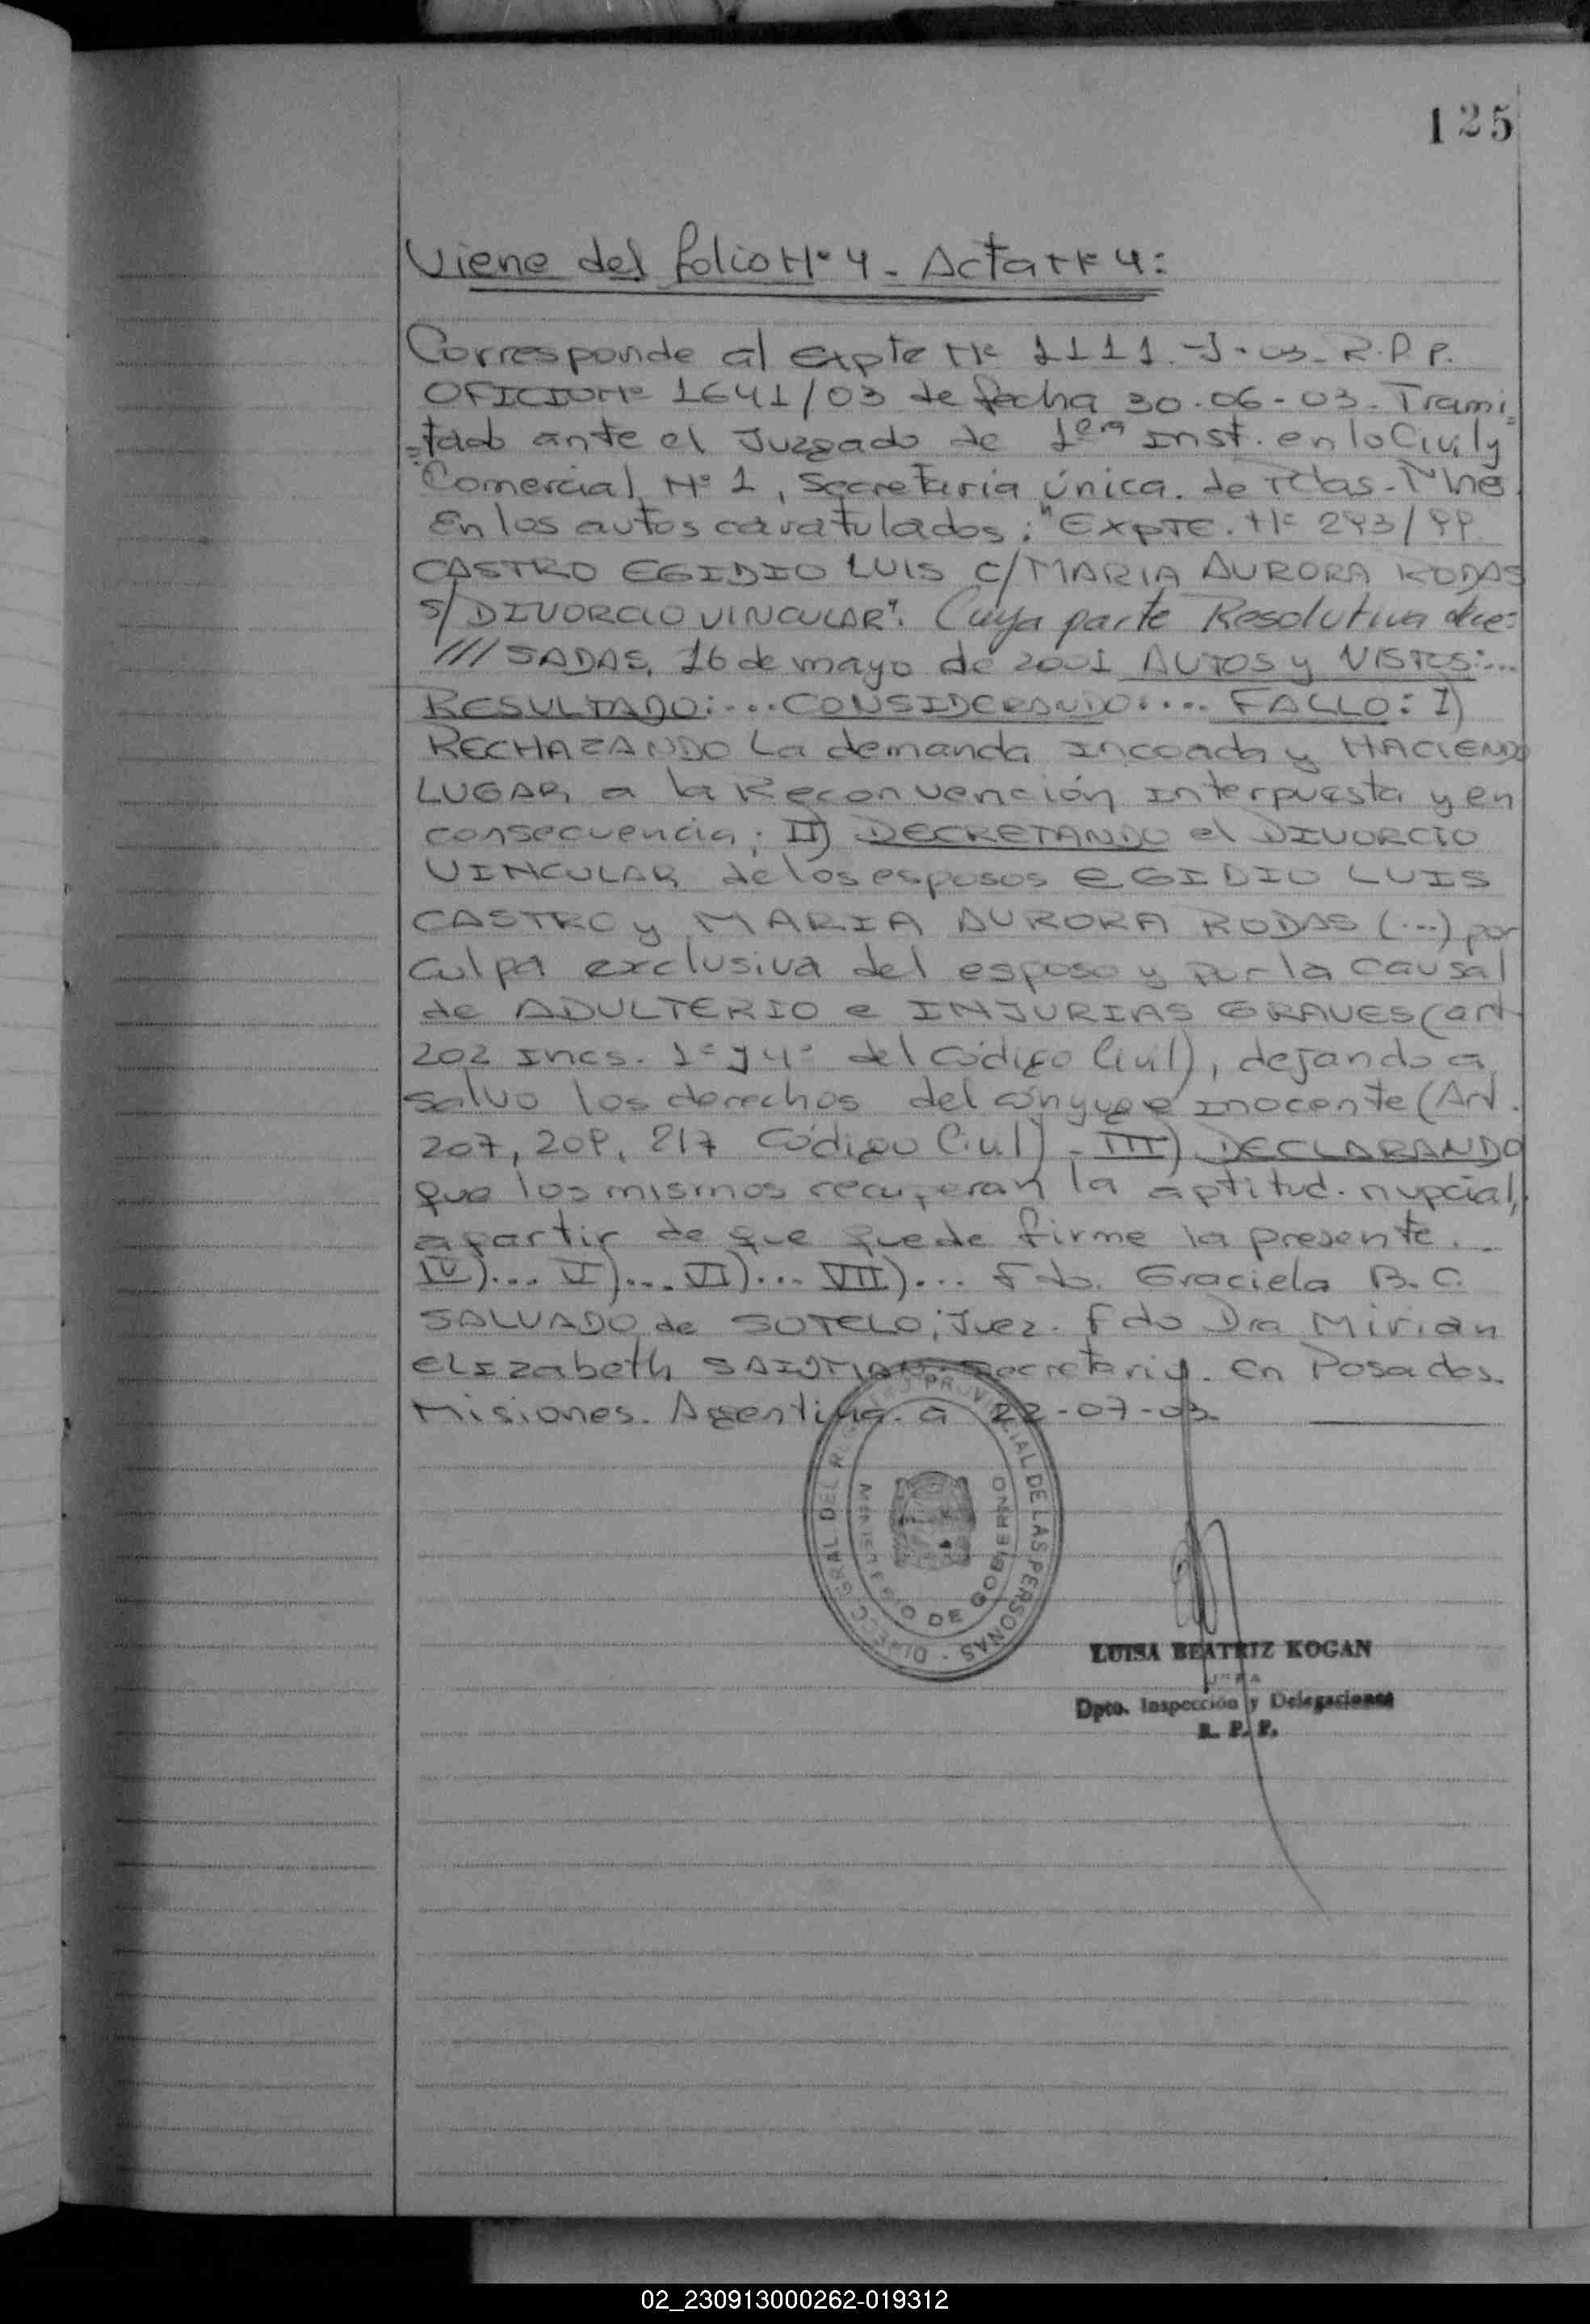 125
Viene del folio Nº 4 - Acta Nº 4:
Corresponde al expte Nº 1111-J-03-R.P.P.
OFICIO Nº 1641/03 de fecha 30-06-03- Trami=
=tado ante el Juzgado de 1era Inst. en lo Civil y
Comercial Nº 1, Secretaria Única. de Pdas-Mnes
En los autos caratulados: "EXPTE. Nº 293/99
CASTRO EGIDIO LUIS C/ MARIA AURORA RODAS
S/ DIVORCIO VINCULAR". Cuya parte Resolutiva dice:
///SADAS, 16 de mayo de 2001 AUTOS y VISTOS:...
RESULTADO:... CONSIDERANDO:... FALLO: I)
RECHAZANDO La demanda incoada y HACIENDO
LUGAR a la Reconvención interpuesta y en
consecuencia; II) DECRETANDO el DIVORCIO
VINCULAR de los esposos EGIDIO LUIS
CASTRO y MARIA AURORA RODAS (...) por
culpa exclusiva del esposo y por la causal
de ADULTERIO e INJURIAS GRAVES (art
202 incs. 1º y 4º del Código Civil), dejando a
salvo los derechos del cónyuge inocente (Art.
207, 209, 217 Código Civil) - III) DECLARANDO
que los mismos recuperan la aptitud nupcial,
a partir de que quede firme la presente.-
IV)... V)... VI)... VII)... Fdo. Graciela B. C.
SALVADO de SOTELO; Juez. Fdo Dra Mirian
Elizabeth Secretaria. En Posadas.
Misiones. Argentina. a 22-07-03.
DIRECC GRAL DEL REGISTRO PROVINCIAL DE LAS PERSONAS -
MINISTERIO DE GOBIERNO
LUISA BEATRIZ KOGAN
JEFA
Dpto. Inspección y Delegaciones
R. P. P.
02_230913000262-019312